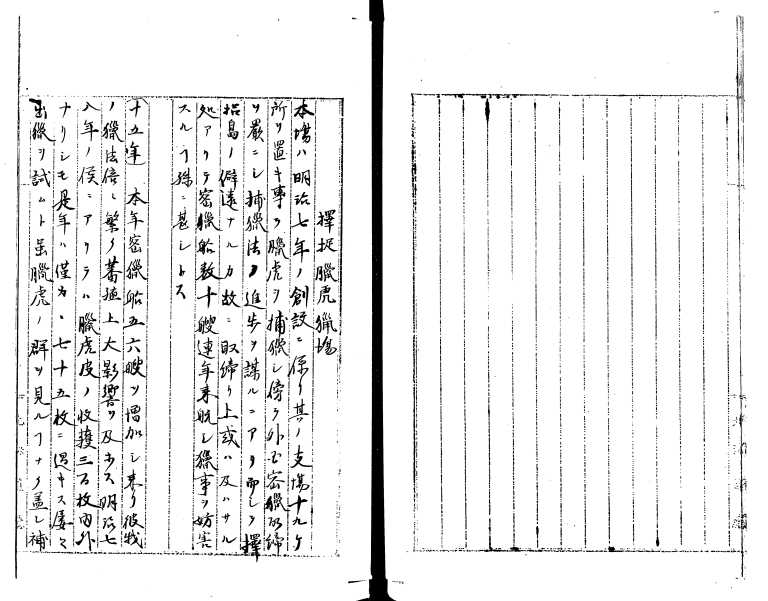 擇捉臘虎獵場
本場ハ明治七年ノ創設ニ係リ其ノ支場十九ケ
所ヲ置キ専ラ臘虎ヲ捕獵シ傍ラ外国密獵取締
ヲ嚴ニシ捕獵法ノ進歩ヲ謀ルニアリ而シテ擇
捉島ノ僻遠ナルカ故ニ取締リ上或ハ及ハサル
処アリテ密獵船数十艘連年来航シ獵事ヲ妨害
スルヿ殊ニ甚シトス
十五年　本年密獵船五六艘ヲ増加シ来リ彼我
ノ獵法倍々繁ク蕃殖上大影響ヲ及ホス明治七
八年ノ侯ニアリテハ臘虎皮ノ收獲三百枚内外
ナリシモ是年ハ僅カニ七十五枚ニ過キス屡々
出獵ヲ試ムト虽臘虎ノ群ヲ見ルヿナク盖シ補